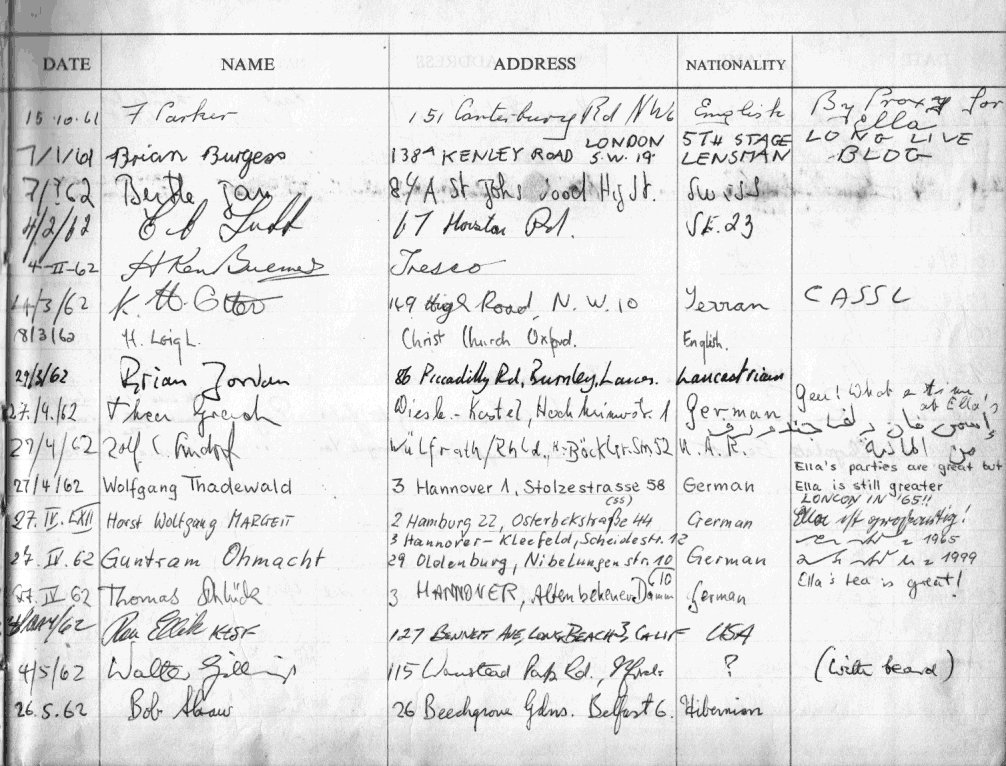 DATE NAME ADDRESS NATIONALITY
15.10.61 F Parker 151 Canterbury Rd NW6 English By Proxy for Ella
7/1/61 Brian Burgess 138A KENLEY ROAD LONDON S.W.19. 5TH STAGE LENSMAN LONG LIVE BLOG
7/ /62 84A St Johns Wood High St. Swiss
4/2/62 67 Houston Rd. SE.23
4-II-62 H Ken Bulmer Tresco
14/3/62 K. 149 High Road, N.W.10 Terran CASSL
18/3/62 H. Leigh. Christ Church Oxford. English.
29/3/62 Brian Jordan 86 Piccadilly Rd, Burnley, Lancs. Lancastrian
27./4./62 Gee! What a time at Ella's
German
27/4/62 Wülfrath/Rhld., H.-Böckler-Str. 52 U.A.R. من المانية
27/4/62 Wolfgang Thadewald 3 Hannover 1, Stolzestrasse 58 German Ella's parties are great but
Ella is still greater
LONCON IN '65!!
27. IV. LXII Horst Wolfgang MARGEIT 2 Hamburg 22, Osterbekstraße 44 (SS) German Ella ist
3 Hannover-Kleefeld, Scheidestr. 12 1965
27. IV. 62 Guntram Ohmacht 29 Oldenburg, Nibelungenstr. 10 German 1999
27. IV 62 Thomas Schlück 3 HANNOVER, Altenbekener Damm German Ella's tea is great!
/MAY/62 Ron Ellik KLSF 127 BENNETT AVE, LONG BEACH 3, CALIF USA
4/5/62 Walter Gillings 115 Wanstead Park Rd., Ilford ? (with beard)
26.5.62 Bob Shaw 26 Beechgrove Gdns. Belfast 6. Hibernian